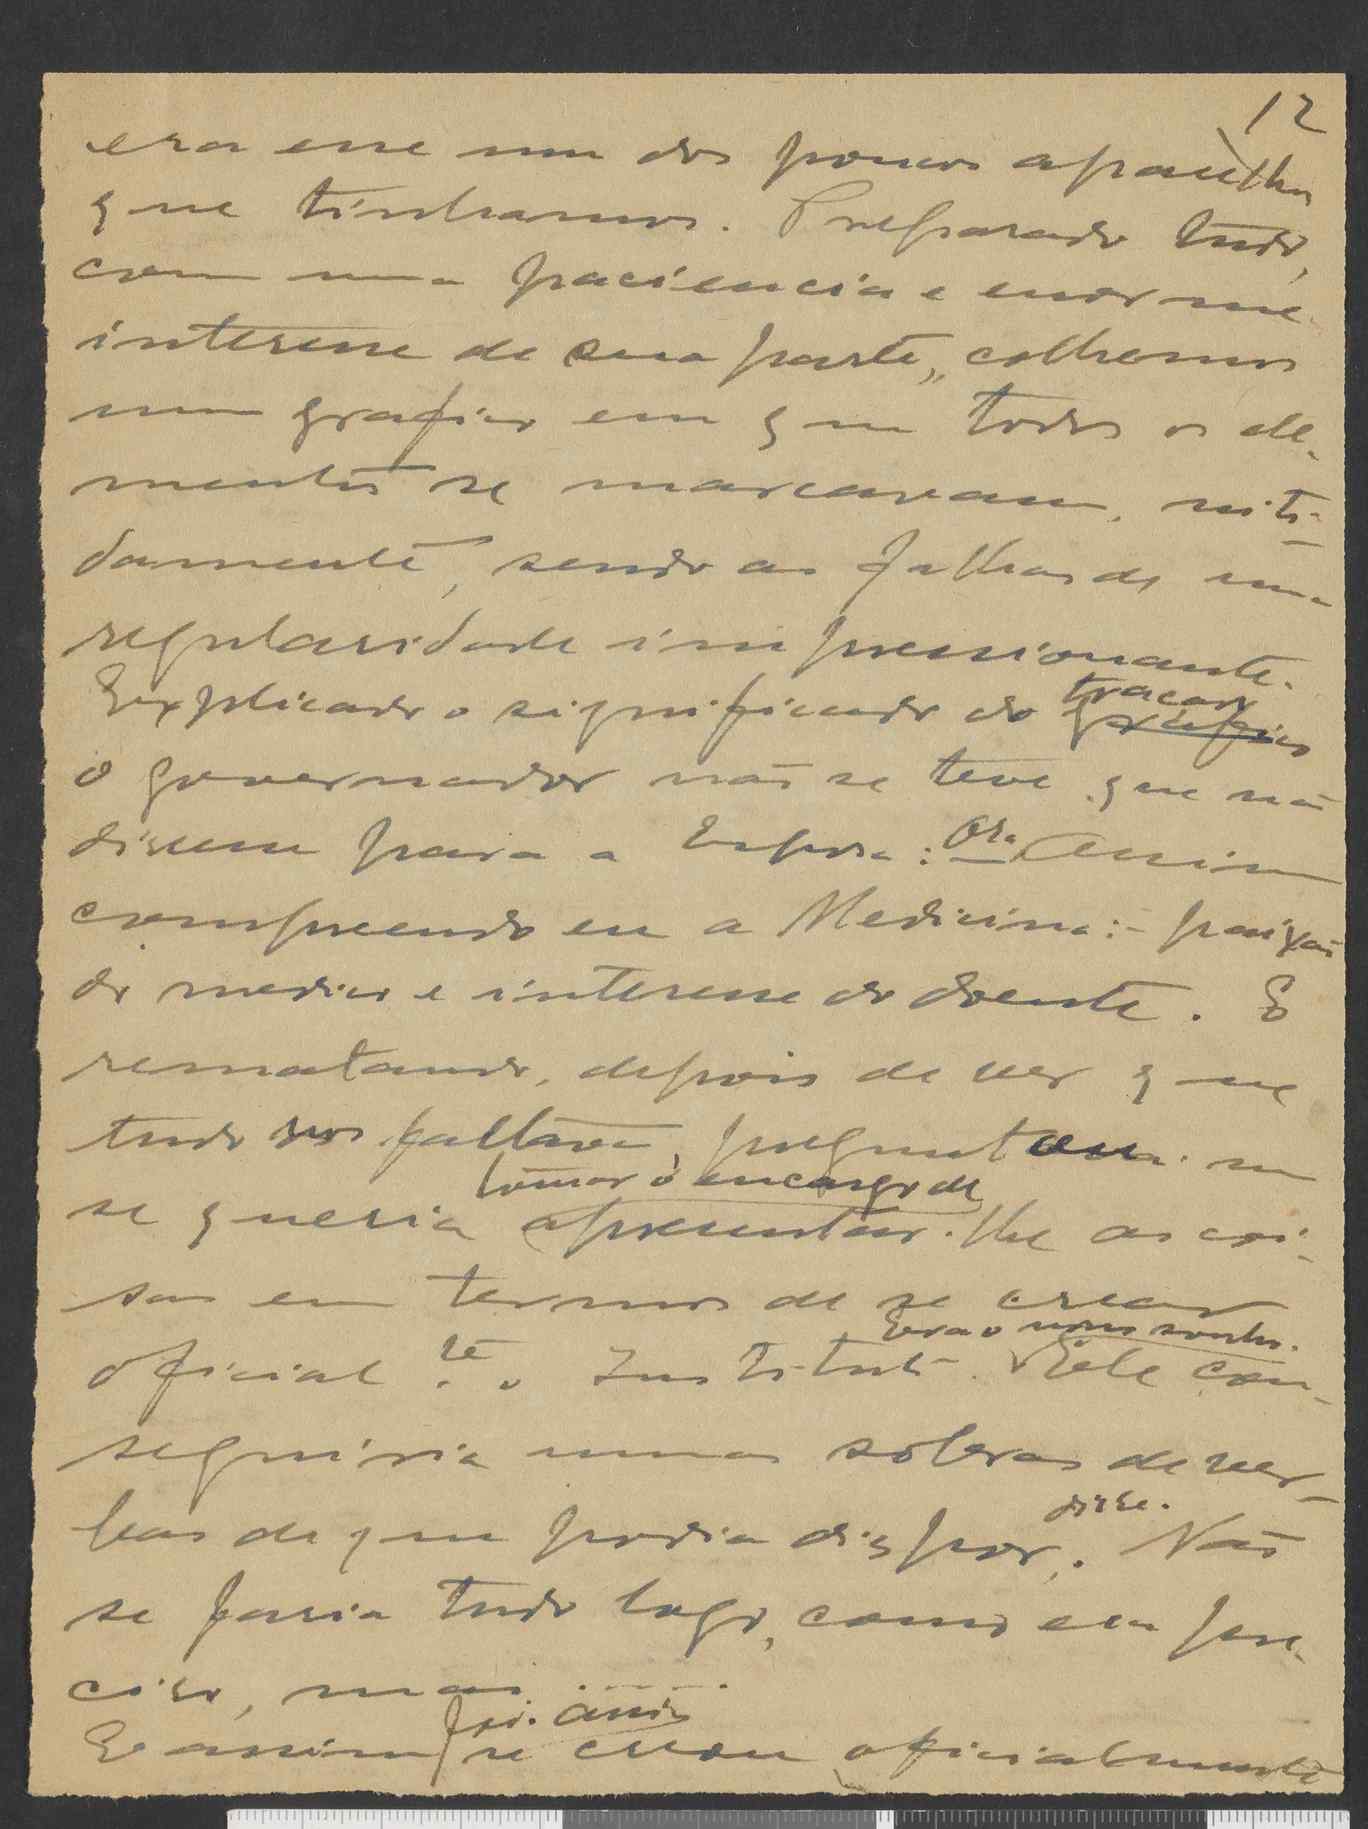 12
era esse um dos poucos aparelhos
que tinhamos. Preparado tudo,
com uma paciencia e enorme
interesse de sua parte, colhemos
um grafico em que todos os ele-
mentos se marcavam, niti-
damente, sendo as falhas de uma
regularidade impressionante.
Explicado o significado do grafico tracado
o governador não se teve que não
dissesse para a Esposa: Ora Assim
compreendo eu a Medicina: - paixão
do medico e interesse do doente. E
rematando, depois de ver que
tudo nos faltava, preguntou-me
se queria tomar o encargo de apresentar-lhe as coi-
sas em termos de se crear
oficial.te o Instituto. Era o nosso sonho. Ele con-
seguiria umas sobras de ver-
bas de que podia dispor, disse. Não
se faria tudo logo, como era pre-
ciso, mas .....
E assim foi. assim se creou oficialmente